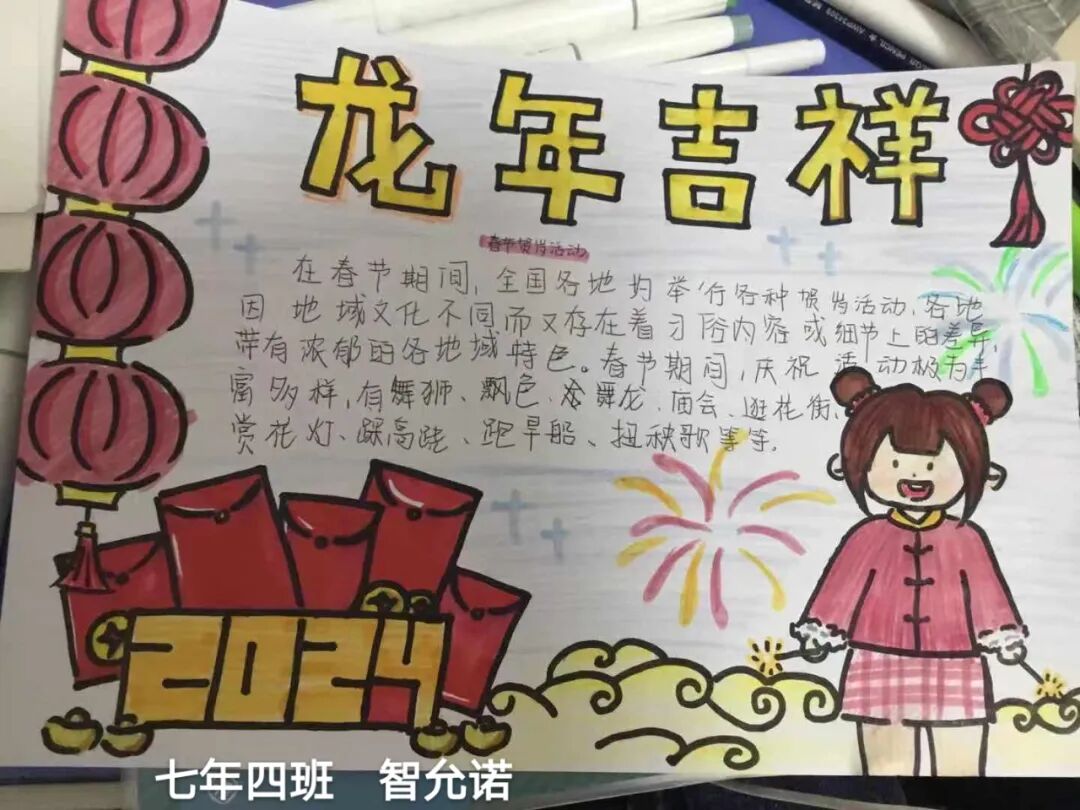 龙年吉祥
春节贺岁活动
在春节期间,全国各地均举行各种贺岁活动,各地
因地域文化不同而又存在着习俗内容或细节上的差异,
带有浓郁的各地域特色。春节期间,庆祝活动极为丰
富多样,有舞狮、飘色、舞龙、庙会、逛花街、
赏花灯、踩高跷、跑旱船、扭秧歌等等.
2024
七年四班 智允诺